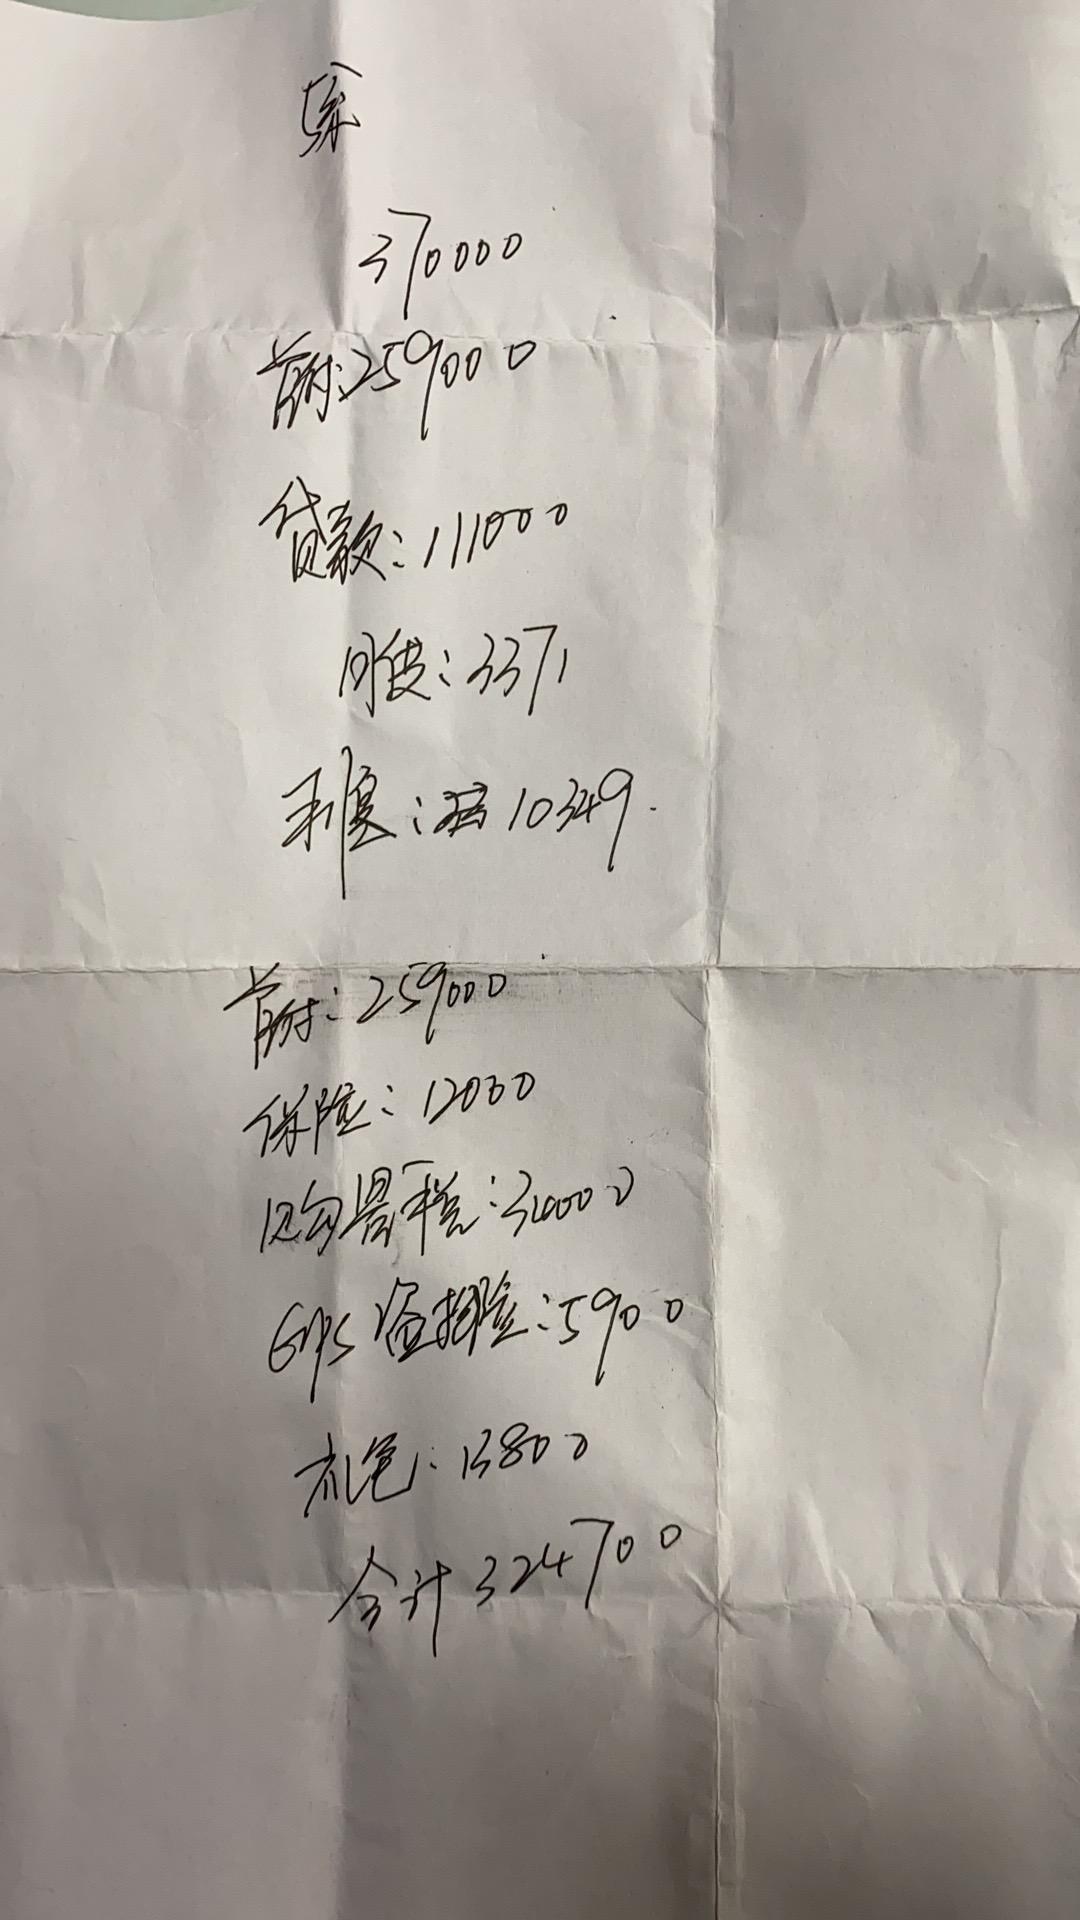 370000
首付:259000
贷款:111000
月供:3371
利息: 10349.
首付:259000
保险:12000
购置税:34000
GPS盗抢险:5900
礼包:13800
合计324700